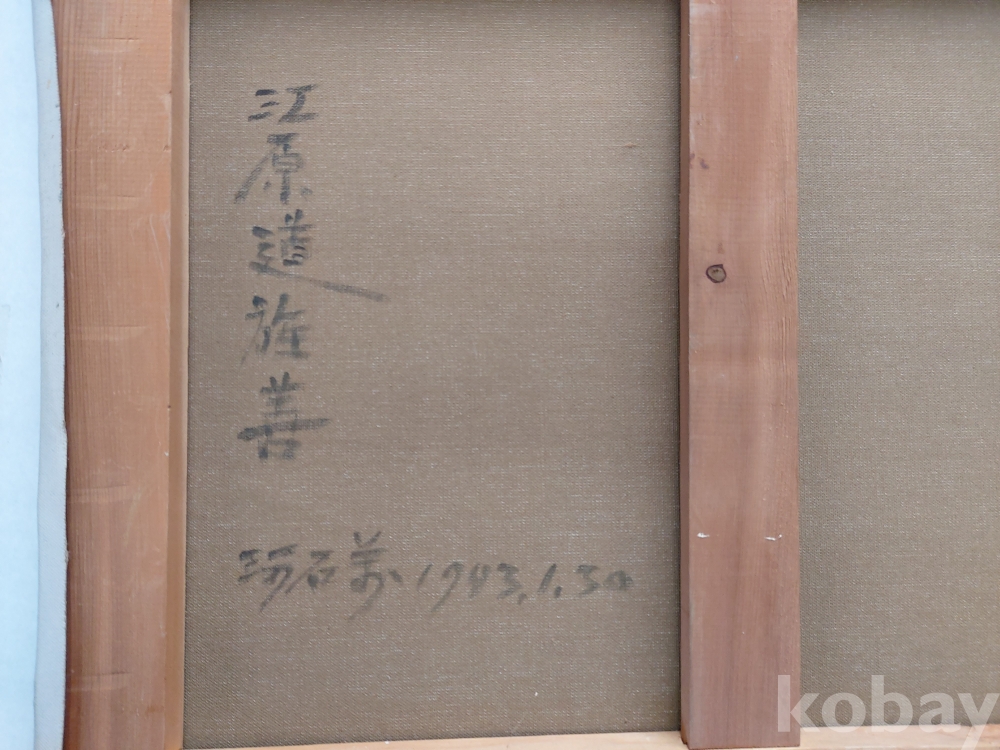 江原道旌善
石 1983.1.30
kobay